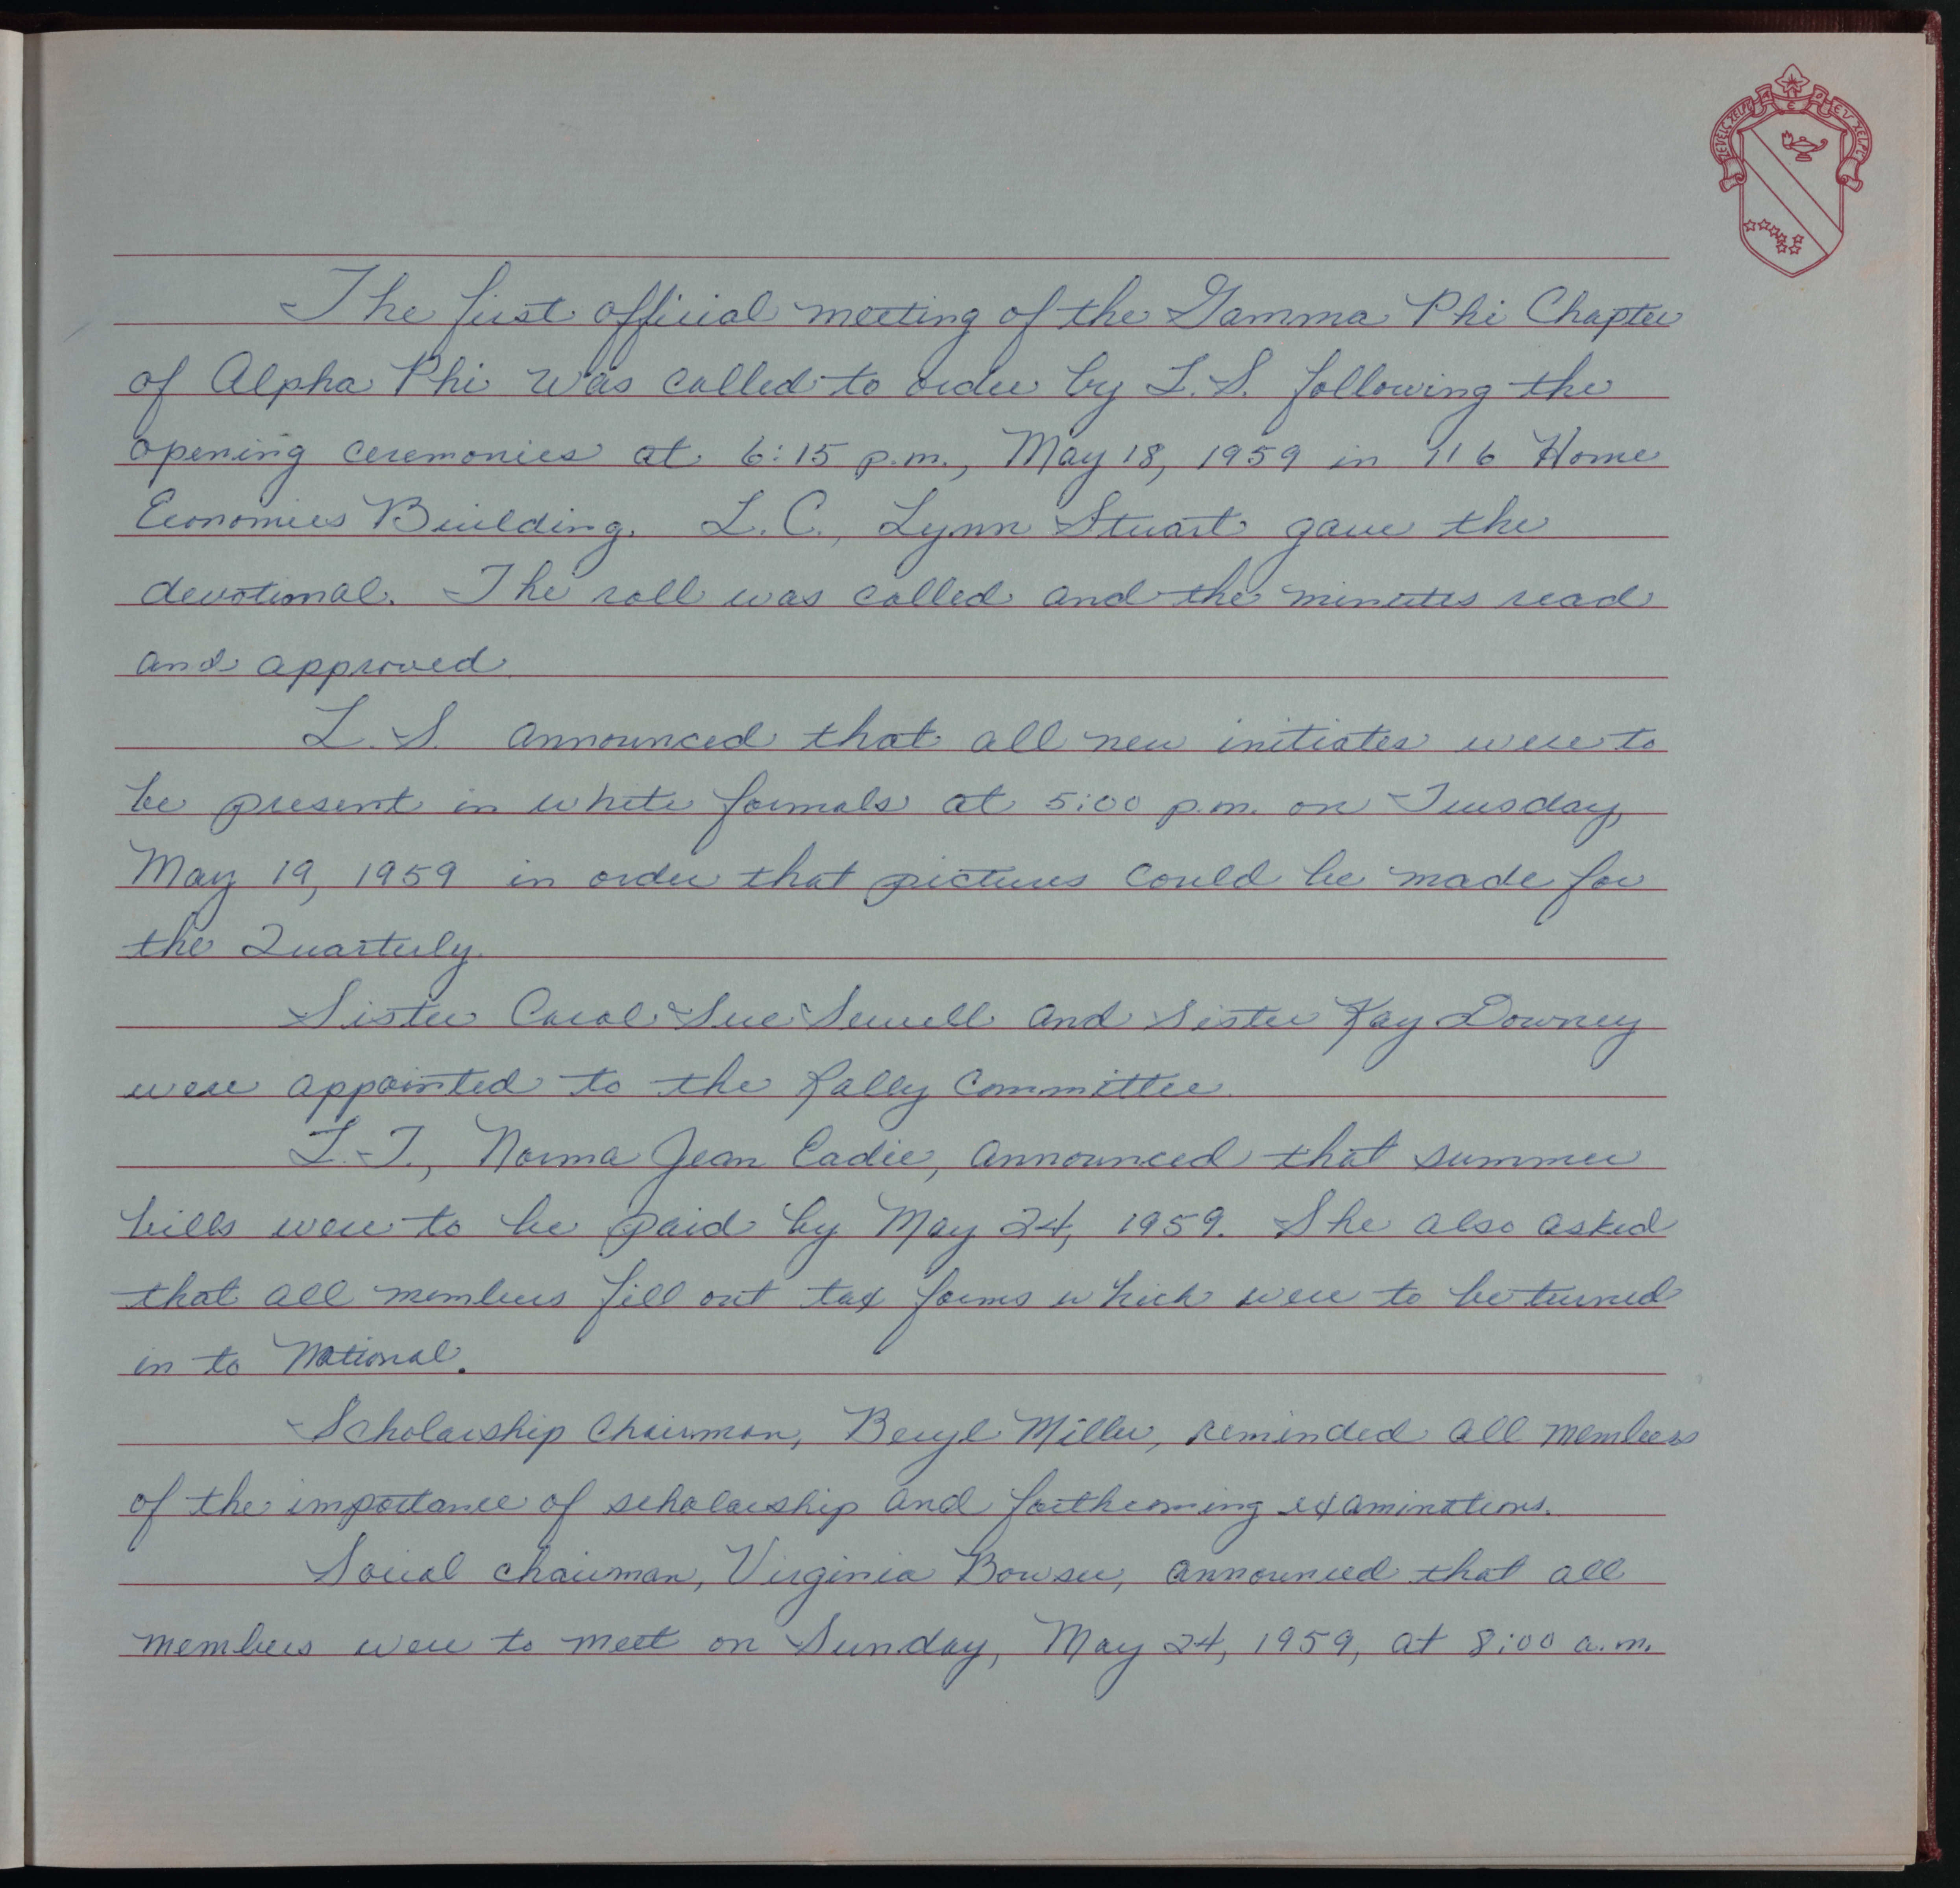 The first official meeting of the Gamma Phi Chapter
of Alpha Phi was called to order by L.S. following the
opening ceremonies at 6:15 p.m., May 18, 1959 in 116 Home
Economics Building. L.C., Lynn Stuart gave the
devotional. The roll was called and the minutes read
and approved.
L.S. announced that all new initiates were to
be present in white formals at 5:00 p.m. on Tuesday,
May 19, 1959 in order that pictures could be made for
the Quarterly.
Sister Carol Sue Sewell and Sister Kay Downey
were appointed to the Rally Committee.
L.T., Norma Jean Eadie, announced that summer
bills were to be paid by May 24, 1959. She also asked
that all members fill out tax forms which were to be turned
in to National.
Scholarship Chairman, Beryl Miller, reminded all members
of the importance of scholarship and forthcoming examinations.
Social chairman, Virginia Bowser, announced that all
members were to meet on Sunday, May 24, 1959, at 8:00 a.m.